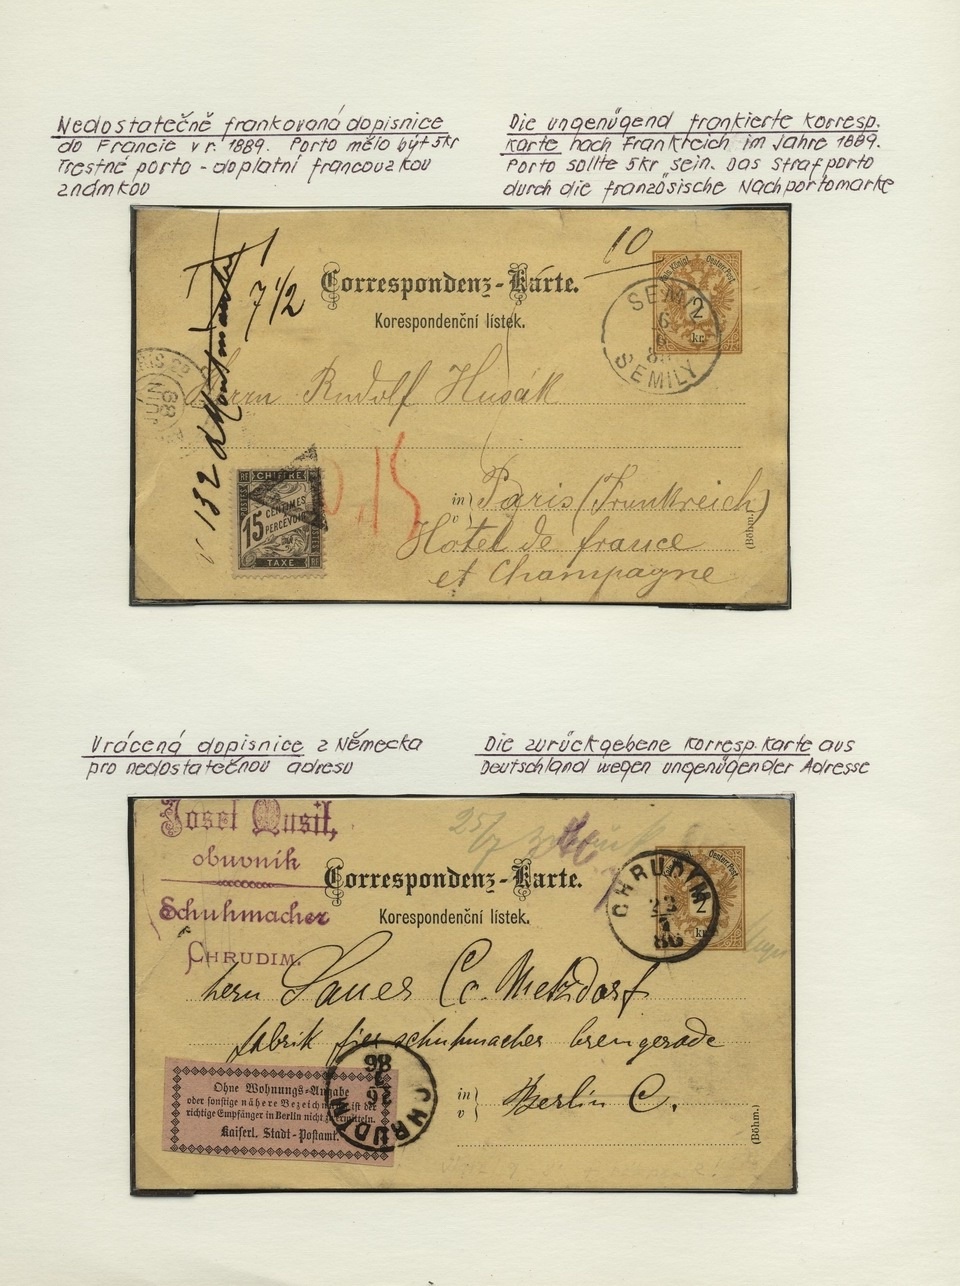 Nedostatečně frankovaná dopisnice
do Francie v r. 1889. Porto mělo být 5kr
Trestné porto - doplatní francouzkou
známkou
Die ungenügend frankierte Korresp.
Karte nach Frankreich im Jahre 1889.
Porto sollte 5kr sein. Das Strafporto
durch die französische Nachportomarke
10
7 1/2
Correspondenz-Karte.
Korespondenční lístek.
2
kr.
SEMIL
SEMILY
132
Herrn Rudolf Husák
0,15
CHIFFRE
15
CENTIMES
PERCEVOIR
TAXE
in
v
Paris (Frankreich)
Hôtel de france
et Champagne
(Böhm.)
Vrácená dopisnice z Německa
pro nedostatečnou adresu
Die zurückgebene Korresp. Karte aus
Deutschland wegen ungenügender Adresse
Josef Qusil,
obuvník
Schuhmacher
CHRUDIM.
25/7
Correspondenz-Karte.
Korespondenční lístek.
2
kr.
CHRUDIM
23
86
Herrn Sauer Co. Metzdorf
fabrik fier schuhmacher
in
v
Berlin C.
(Böhm.)
Ohne Wohnungs-Angabe
oder sonstige nähere Bezeichnung ist der
richtige Empfänger in Berlin nicht zu ermitteln.
Kaiserl. Stadt-Postamt.
CHRUDIM
26
7
86